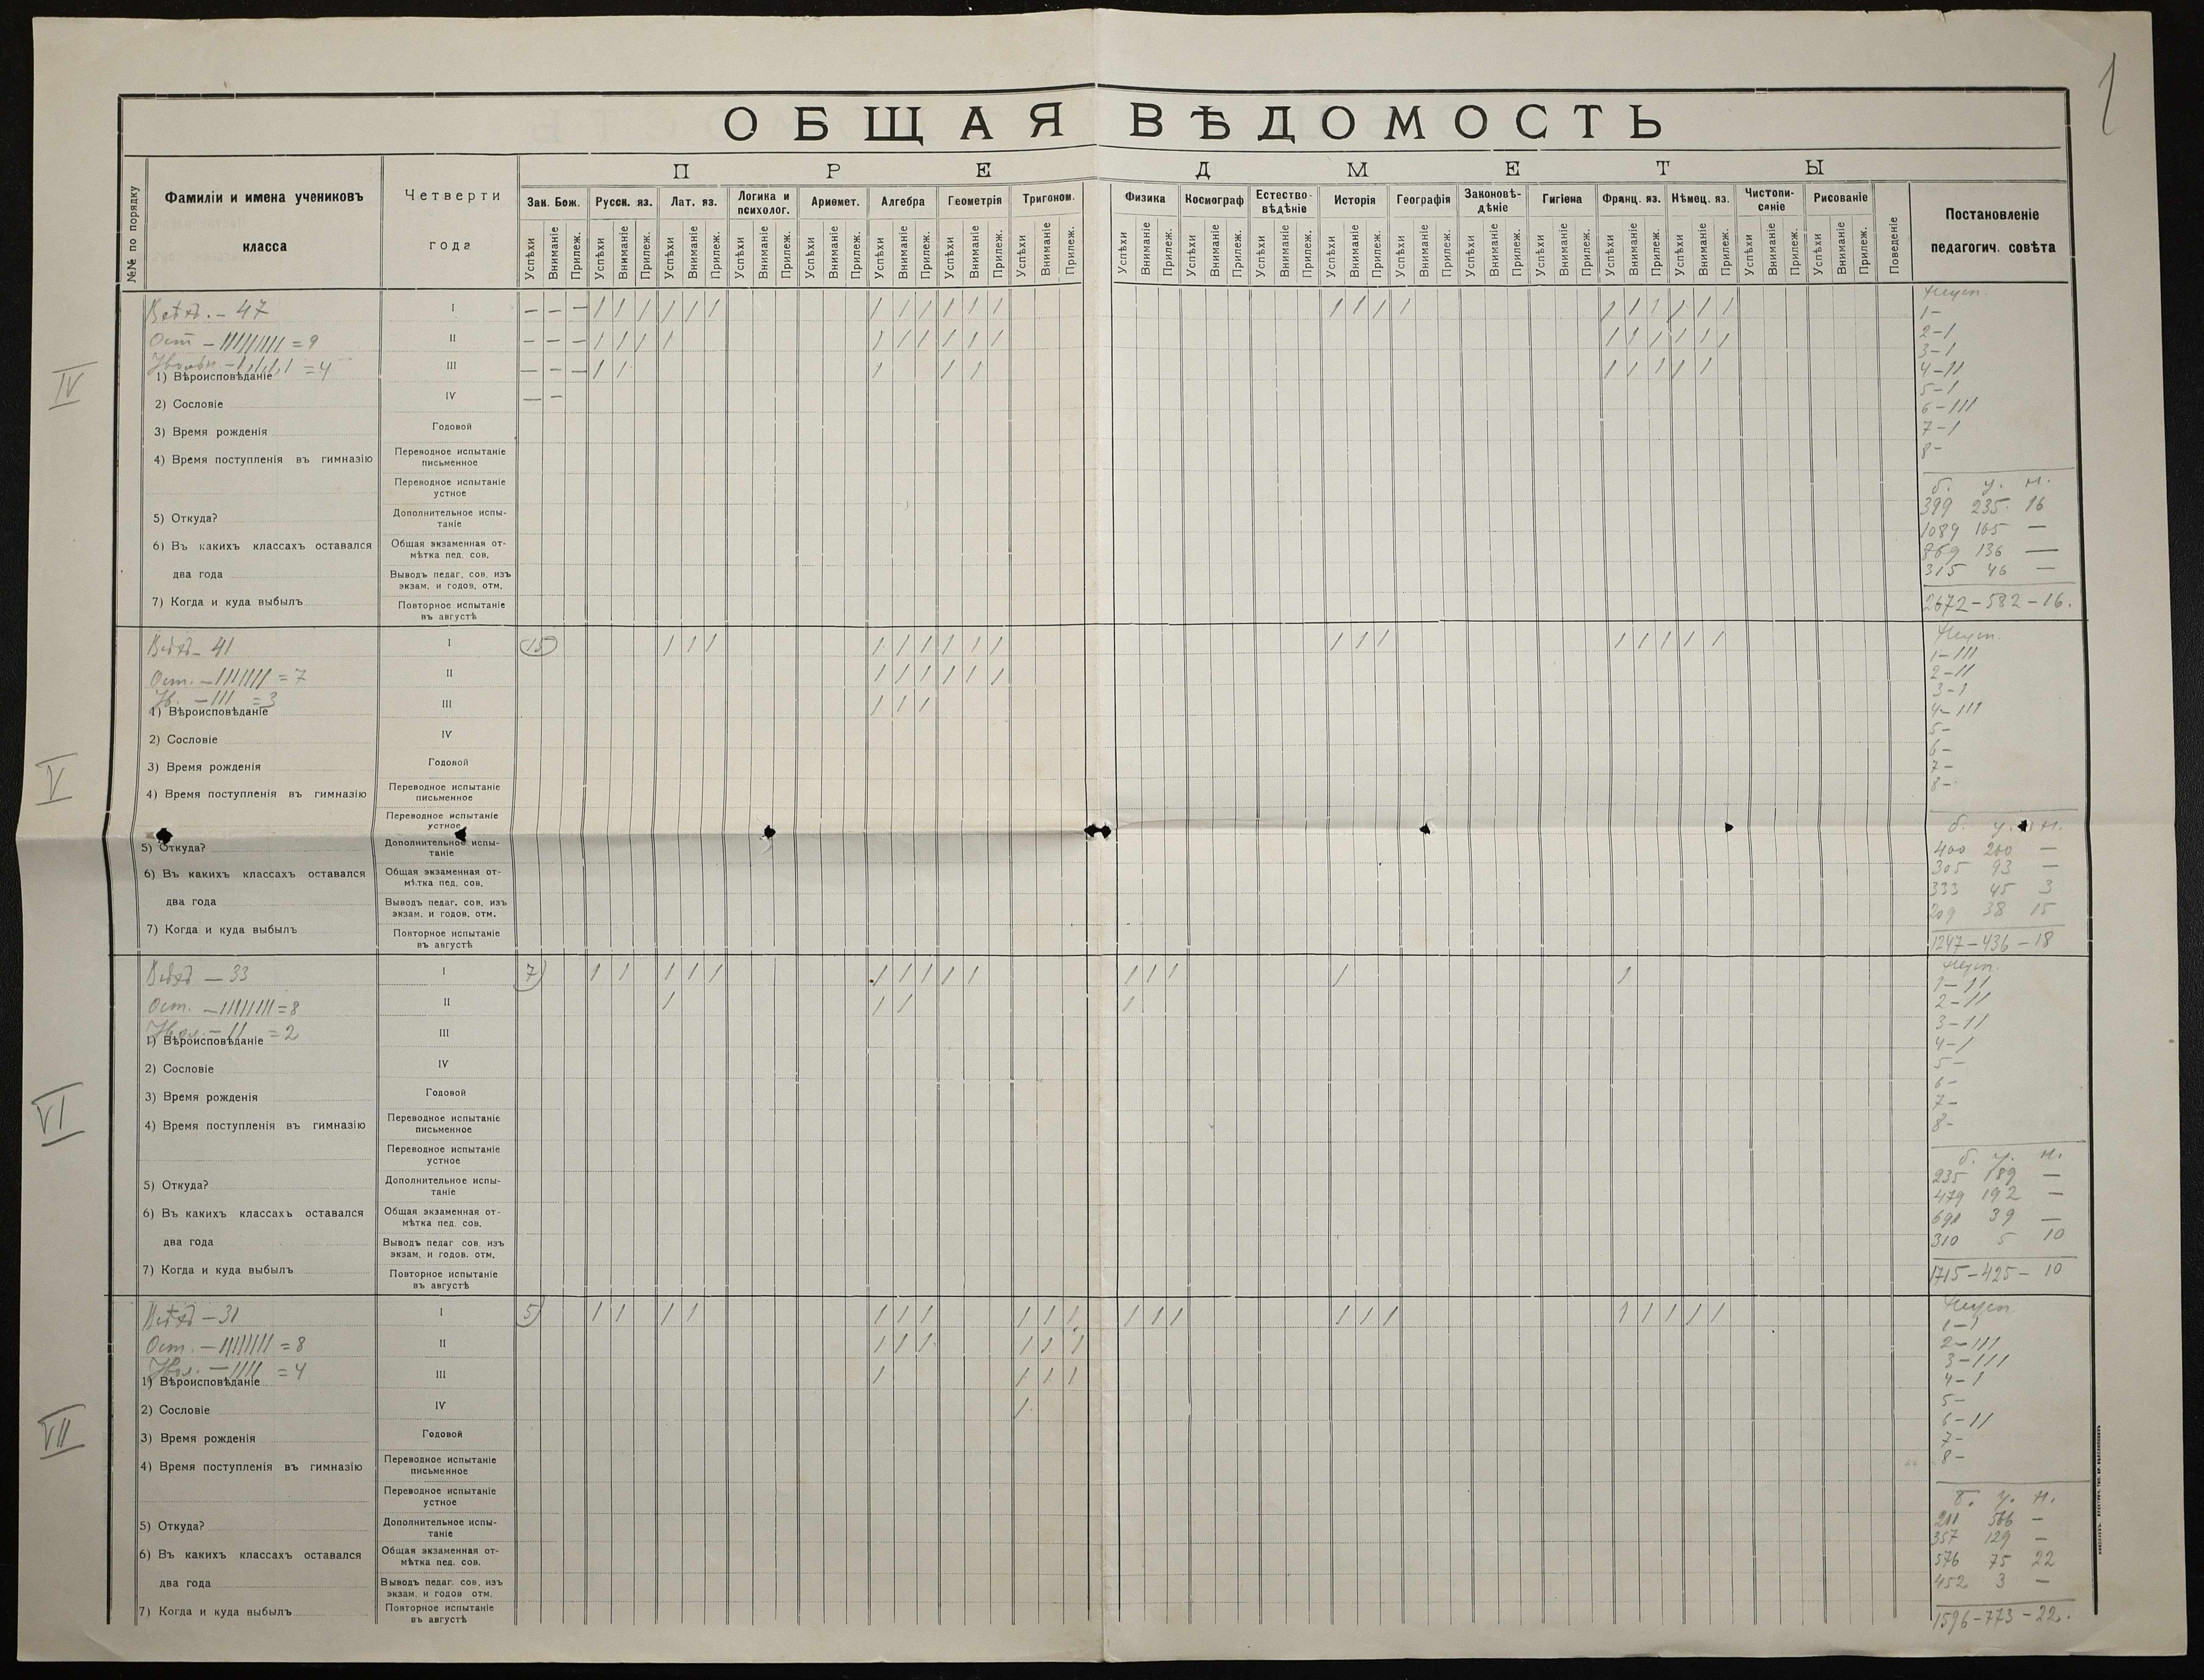 1
ОБЩАЯ ВѢДОМОСТЬ
ПРЕДМЕТЫ
№№ по порядку
Фамиліи и имена учениковъ
класса
Четверти
года
Зак. Бож. Русск. яз. Лат. яз. Логика и психолог. Ариѳмет. Алгебра Геометрія Тригоном. Физика Космограф Естество-вѣдѣніе Исторія Географія Законовѣ-дѣніе Гигіена Франц. яз. Нѣмец. яз. Чистопи-саніе Рисованіе
Успѣхи Вниманіе Прилеж.
Поведеніе
Постановленіе
педагогич. совѣта
IV
Всѣхъ. – 47
Ост – ///////// = 9
= 4
1) Вѣроисповѣданіе
2) Сословіе
3) Время рожденія
4) Время поступленія въ гимназію
5) Откуда?
6) Въ какихъ классахъ оставался
два года
7) Когда и куда выбылъ
I
II
III
IV
Годовой
Переводное испытаніе
письменное
Переводное испытаніе
устное
Дополнительное испы-
таніе
Общая экзаменная от-
мѣтка пед. сов.
Выводъ педаг. сов. изъ
экзам. и годов. отм.
Повторное испытаніе
въ августѣ
Неусп.
1 –
2 – 1
3 – 1
4 – 11
5 – 1
6 – 111
7 – 1
8 –
б. у. н.
399 235 16
1089 165 —
869 136 —
315 46 —
2672 – 582 – 16.
V
Всѣхъ – 41
Ост. – /////// = 7
Ув. – /// = 3
1) Вѣроисповѣданіе
2) Сословіе
3) Время рожденія
4) Время поступленія въ гимназію
5) Откуда?
6) Въ какихъ классахъ оставался
два года
7) Когда и куда выбылъ
I
II
III
IV
Годовой
Переводное испытаніе
письменное
Переводное испытаніе
устное
Дополнительное испы-
таніе
Общая экзаменная от-
мѣтка пед. сов.
Выводъ педаг. сов. изъ
экзам. и годов. отм.
Повторное испытаніе
въ августѣ
15
Неусп.
1 – 111
2 – 11
3 – 1
4 – 111
5 –
6 –
7 –
8 –
б. у. н.
400 260 —
305 93 —
333 45 3
209 38 15
1247 – 436 – 18
VI
Всѣхъ – 33
Ост. – //////// = 8
Увол. – // = 2
1) Вѣроисповѣданіе
2) Сословіе
3) Время рожденія
4) Время поступленія въ гимназію
5) Откуда?
6) Въ какихъ классахъ оставался
два года
7) Когда и куда выбылъ
I
II
III
IV
Годовой
Переводное испытаніе
письменное
Переводное испытаніе
устное
Дополнительное испы-
таніе
Общая экзаменная от-
мѣтка пед. сов.
Выводъ педаг. сов. изъ
экзам. и годов. отм.
Повторное испытаніе
въ августѣ
7
Неусп.
1 – 11
2 – 11
3 – 11
4 – 1
5 –
6 –
7 –
8 –
б. у. н.
235 189 —
479 192 —
691 39 —
310 5 10
1715 – 425 – 10
VII
Всѣхъ – 31
Ост. – //////// = 8
Увол. – //// = 4
1) Вѣроисповѣданіе
2) Сословіе
3) Время рожденія
4) Время поступленія въ гимназію
5) Откуда?
6) Въ какихъ классахъ оставался
два года
7) Когда и куда выбылъ
I
II
III
IV
Годовой
Переводное испытаніе
письменное
Переводное испытаніе
устное
Дополнительное испы-
таніе
Общая экзаменная от-
мѣтка пед. сов.
Выводъ педаг. сов, изъ
экзам. и годов отм.
Повторное испытаніе
въ августѣ
5
Неусп
1 – 1
2 – 111
3 – 111
4 – 1
5 –
6 – 11
7 –
8 –
б. у. н.
211 566 —
357 129 —
576 75 22
452 3 —
1596 – 773 – 22.